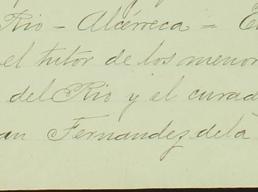 Rio - Alcérreca - E
el tutor de los menor
del Rio y el curad
an Fernandez de la